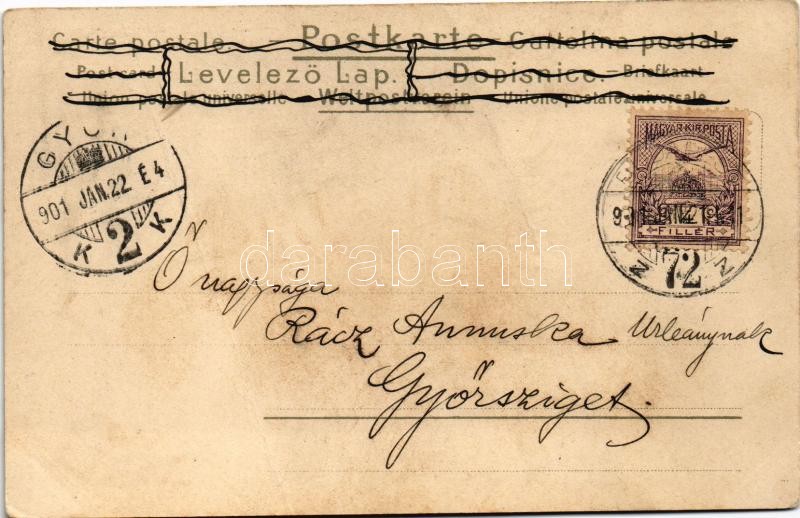 Carte postale. — Postkarte — Cartolina postale
Post-card — Levelező Lap. — Dopisnice. — Briefkaart
Union postale universelle — Weltpostverein — Unione postale universale
GYŐR
901 JAN. 22 É4
K 2 K
MAGYAR KIR. POSTA
FILLÉR
72
darabanth
Ő nagysága
Rácz Annuska Urleánynak
Győrsziget.